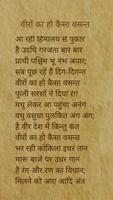 वीरों का हो कैसा वसन्त
आ रही हिमालय से पुकार
है उदधि गरजता बार बार
प्राची पश्चिम भू नभ अपार;
सब पूछ रहें हैं दिग-दिगन्त
वीरों का हो कैसा वसन्त
फूली सरसों ने दिया रंग
मधु लेकर आ पहुंचा अनंग
वधु वसुधा पुलकित अंग अंग;
है वीर देश में किन्तु कंत
वीरों का हो कैसा वसन्त
भर रही कोकिला इधर तान
मारू बाजे पर उधर गान
है रंग और रण का विधान;
मिलने को आए आदि अंत